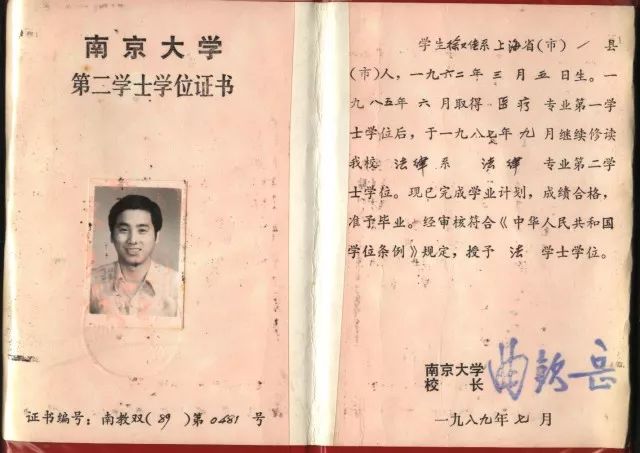 南京大学
第二学士学位证书
证书编号：南教双(89)第0481号
学生徐 系上海省(市)/县
(市)人，一九六二年三月五日生。一
九八五年六月取得医疗专业第一学
士学位后，于一九八七年九月继续修读
我校法律系法律专业第二学
士学位。现已完成学业计划，成绩合格，
准予毕业。经审核符合《中华人民共和国
学位条例》规定，授予法学士学位。
南京大学
校长 曲钦岳
一九八九年七月